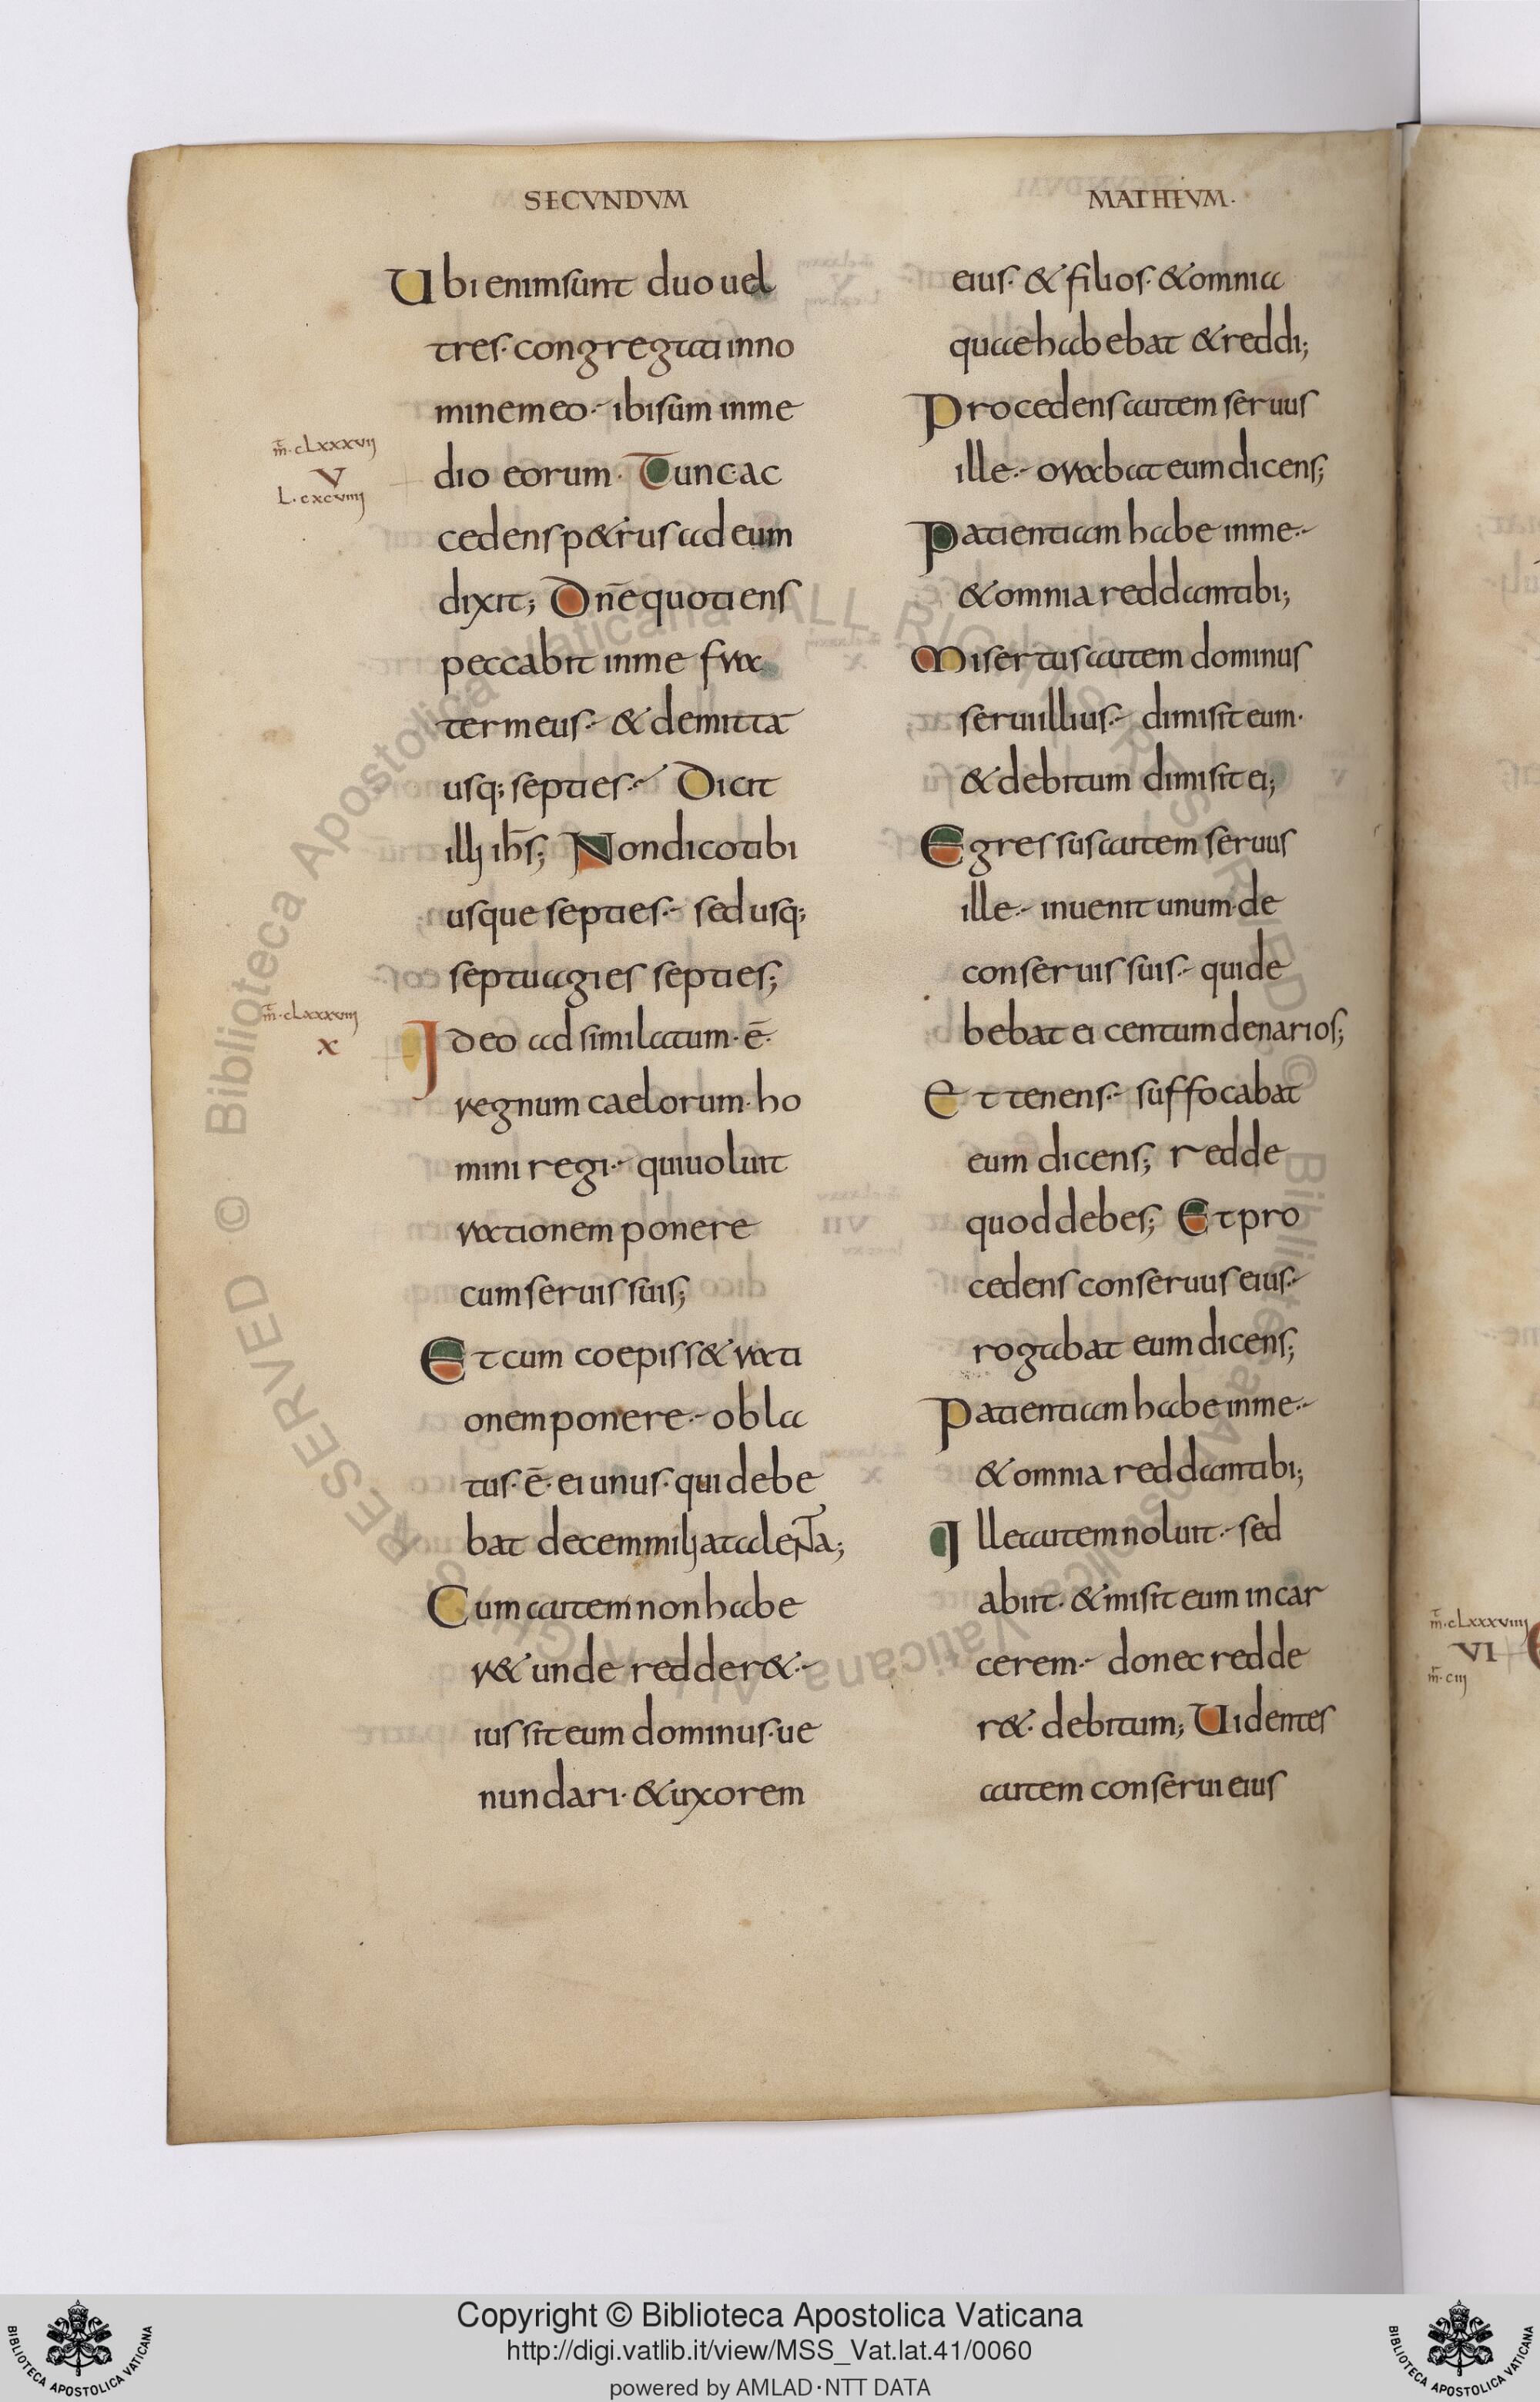 SECVNDVM
Ubi enim sunt duo uel
tres· congregati in no
mine meo·- ibi sum in me
m̄·clxxxvij
V
L·cxcviiij
dio eorum· Tunc ac
cedens p&rus ad eum
dixit; Dn̄e quotiens
peccabit in me fra
ter meus·- & demittā
usq; septies·- Dicit
illi ihs̄; Non dico tibi
usque septies·- sed usq;
septuagies septies;
m̄·clxxxviij
x
Ideo ad similatum·ē·
regnum caelorum· ho
mini regi·- qui uoluit
rationem ponere
cum seruis suis;
Et cum coepiss& rati
onem ponere·- obla
tus·ē· ei unus· qui debe
bat decem milia talenta;
Cum autem non habe
r& unde redder&·-
iussit eum dominus· ue
nundari· & uxorem
MATHEVM·
eius· & filios· & omnia
quae habebat & reddi;
Procedens autem seruus
ille·- orabat eum dicens;
Patientiam habe in me·-
& omnia reddam tibi;
Misertus autem dominus
serui illius·- dimisit eum·
& debitum dimisit ei;
Egressus autem seruus
ille·- inuenit unum de
conseruis suis·- qui de
bebat ei centum denarios;
Et tenens·- suffocabat
eum dicens; redde
quod debes; Et pro
cedens conseruus eius·-
rogabat eum dicens;
Patientiam habe in me·-
& omnia reddam tibi;
Ille autem noluit·- sed
abiit· & misit eum in car
cerem·- donec redde
r&· debitum; Uidentes
autem conserui eius
m̄·clxxxviiij
VI
m̄·ciij
Copyright © Biblioteca Apostolica Vaticana
http://digi.vatlib.it/view/MSS_Vat.lat.41/0060
powered by AMLAD·NTT DATA
BIBLIOTECA APOSTOLICA VATICANA
BIBLIOTECA APOSTOLICA VATICANA